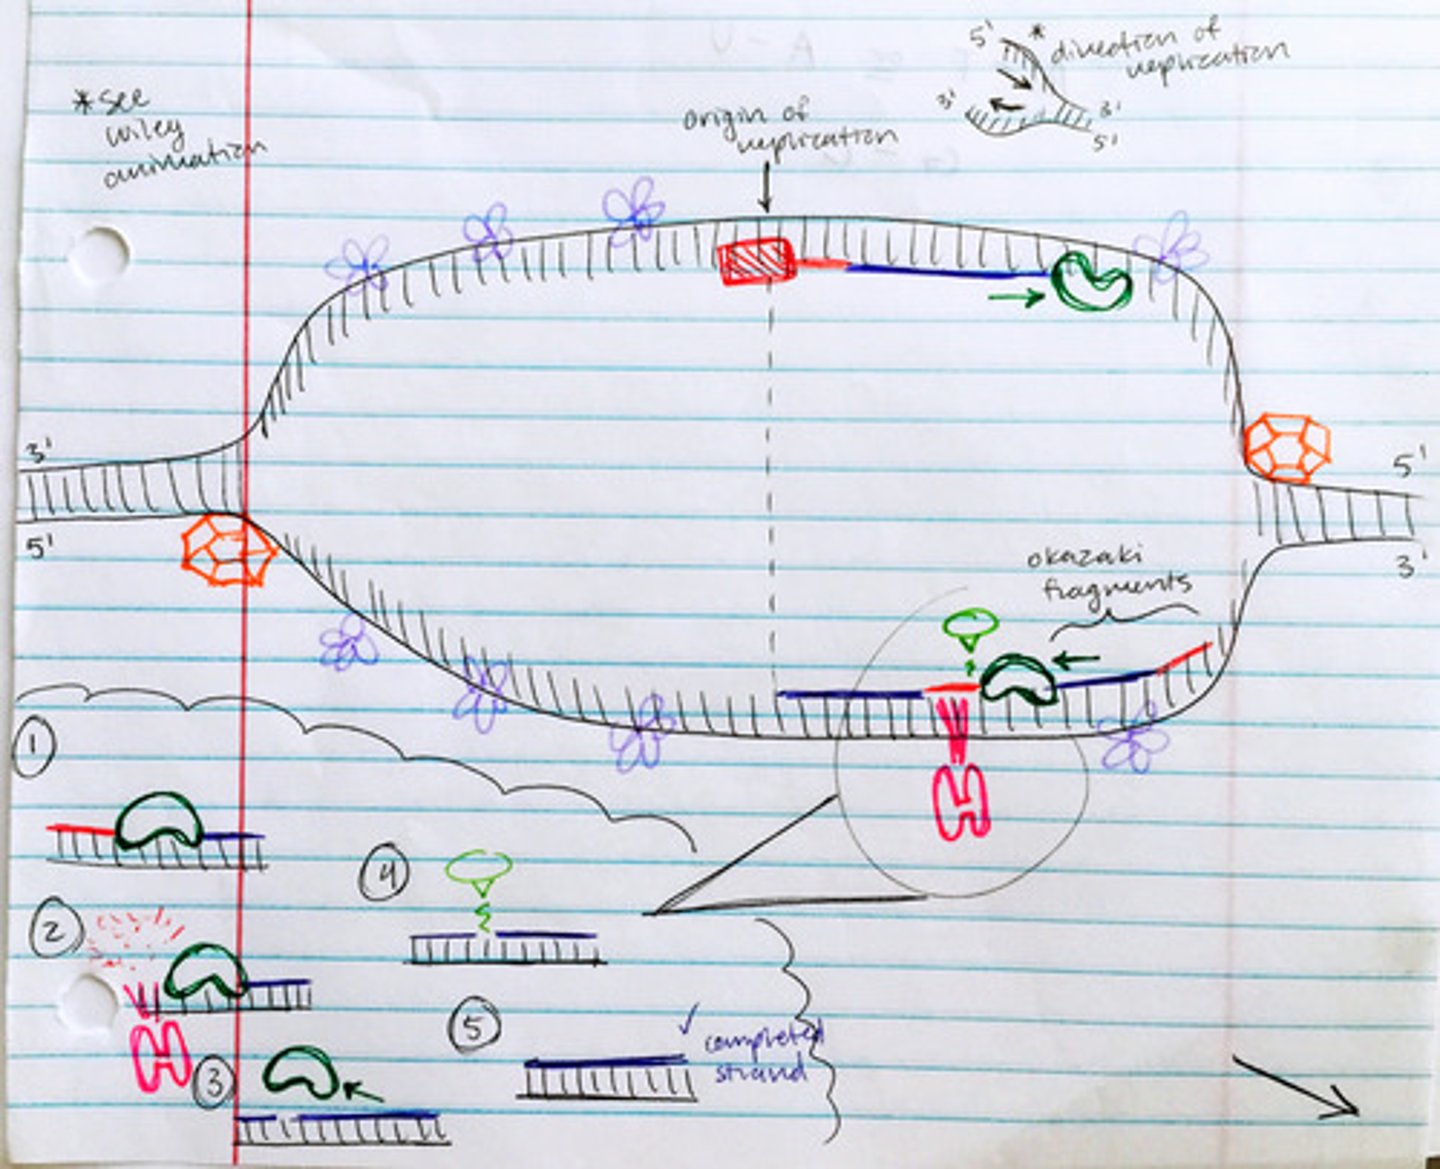 5'
* direction of
replication
3'
3'
5'
*see
wiley
animation
origin of
replication
3'
5'
5'
3'
okazaki
fragments
1
4
2
5
✓ completed
strand
3